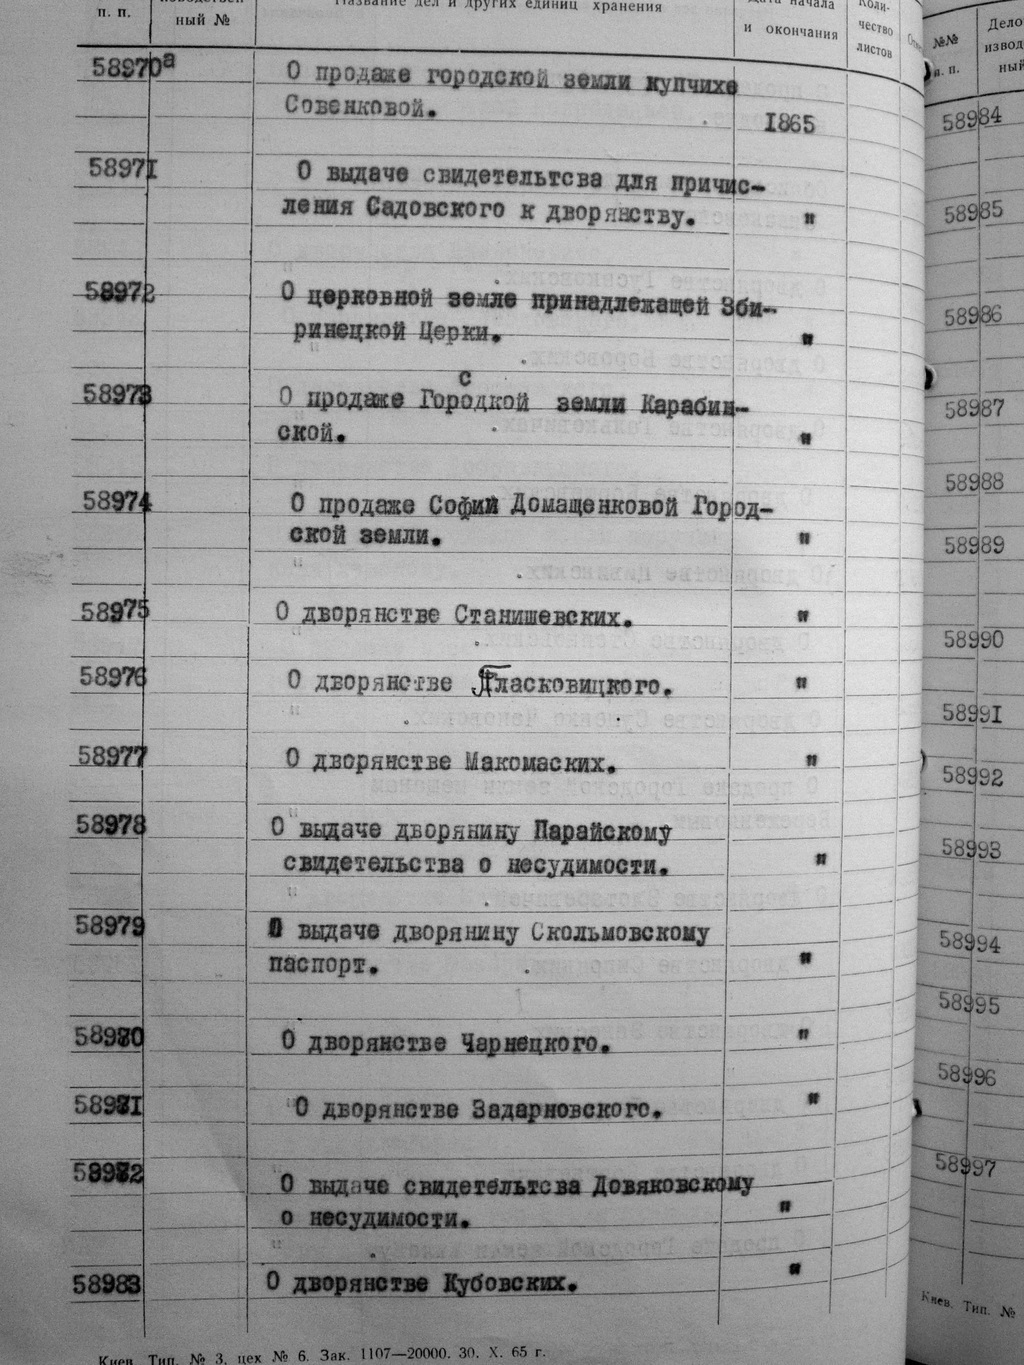 п. п.
ный №
Название дел и других единиц хранения
Дата начала
и окончания
Коли-
чество
листов
58970а
О продаже городской земли купчихе
Совенковой.
1865
58971
О выдаче свидетельтсва для причис-
ления Садовского к дворянству.
"
58972
О церковной земле принадлежащей Зби-
ринецкой Церки.
"
58973
с
О продаже Городкой земли Карабин-
ской.
"
58974
О продаже Софии Домащенковой Город-
ской земли.
"
58975
О дворянстве Станишевских.
"
58976
О дворянстве Пласковицкого.
"
58977
О дворянстве Макомаских.
"
58978
О выдаче дворянину Парайскому
свидетельства о несудимости.
"
58979
О выдаче дворянину Скольмовскому
паспорт.
"
58980
О дворянстве Чарнецкого.
"
58981
О дворянстве Задарновского.
"
58982
О выдаче свидетельтсва Довяковскому
о несудимости.
"
58983
О дворянстве Кубовских.
"
Киев. Тип. № 3, цех № 6. Зак. 1107—20000. 30. X. 65 г.
№№
п. п.
Дело
извод
ный
58984
58985
58986
58987
58988
58989
58990
58991
58992
58993
58994
58995
58996
58997
Киев. Тип. №